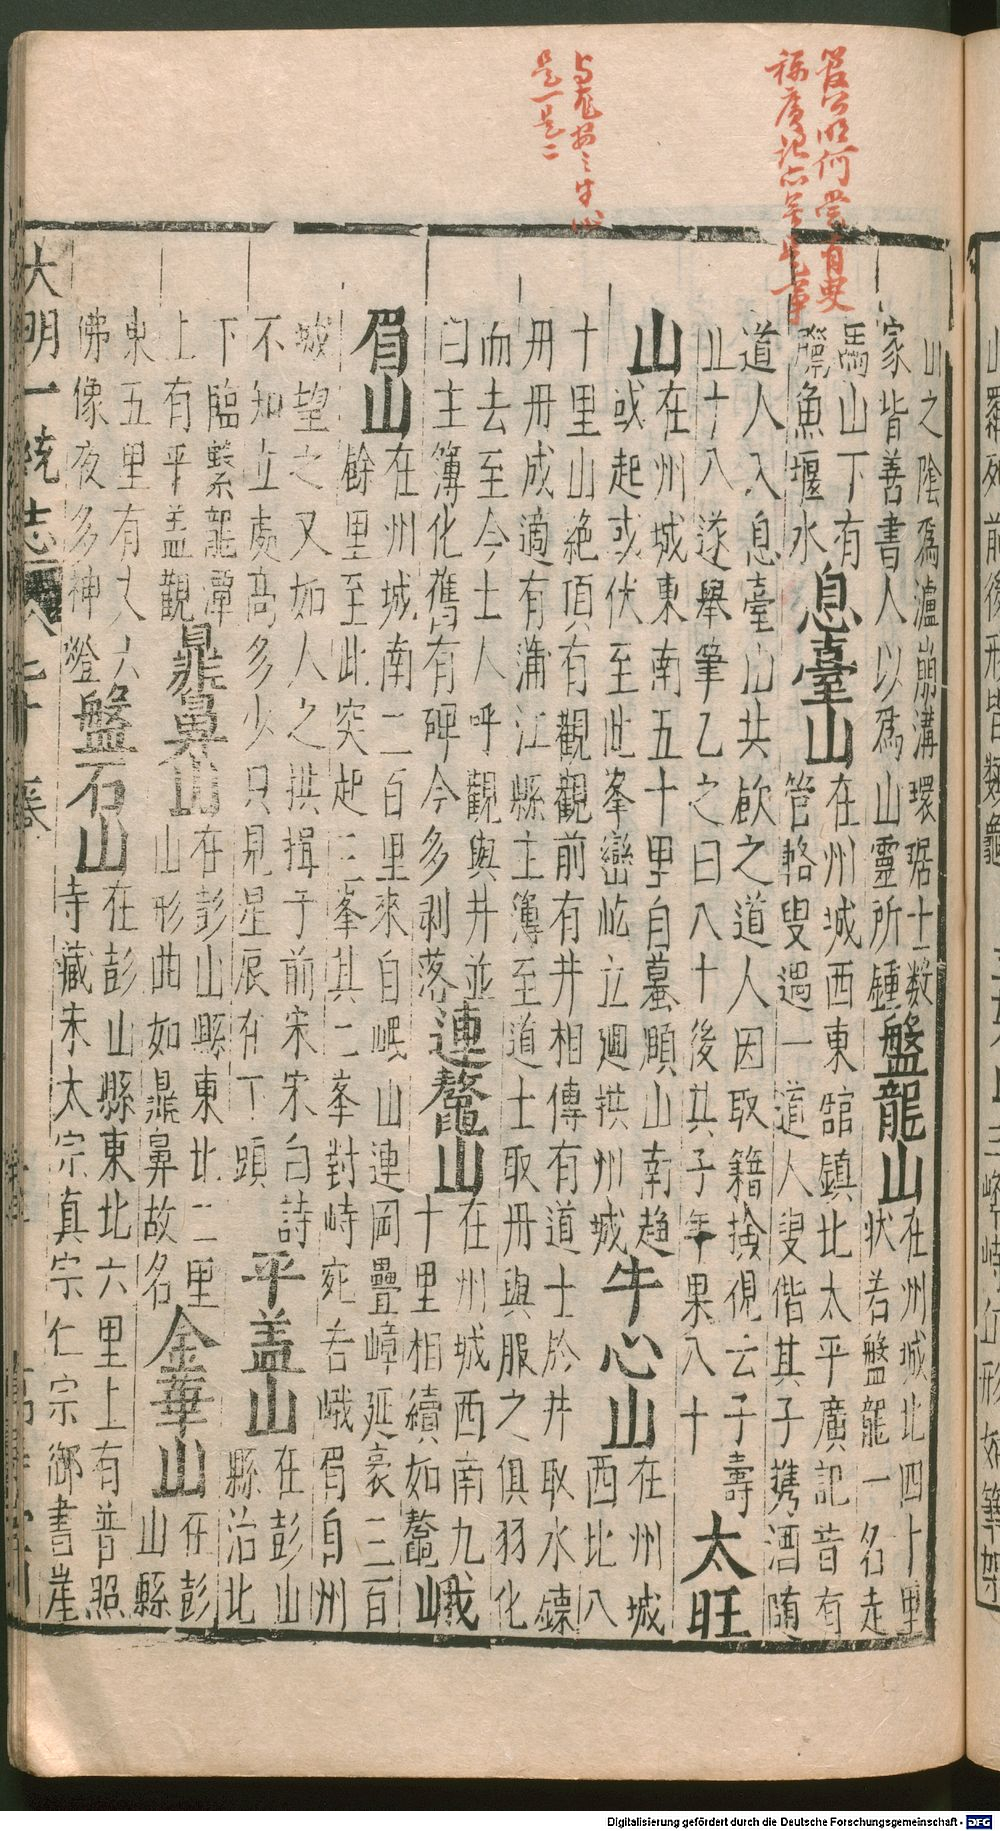 山之陰為瀘崩溝環琚土數
家皆善書人以為山靈所鍾
盤龍山
在州城北四十里
狀若盤龍一名走
馬山下有
魚堰水
息臺山
在州城西東舘鎮北太平廣記昔有
管輅叟遇一道人叟偕其子携酒随
道人入息臺山共飲之道人因取籍撿視云子壽
止十八遂舉筆乙之曰八十後其子年果八十
太旺
山
在州城東南五十里自蟇頥山南趨
或起或伏至此峯巒屹立廻拱州城
牛心山
在州城
西北八
十里山絶頂有觀觀前有井相傳有道士於井取水鍊
丹丹成適有蒲江縣主簿至道士取丹與服之俱羽化
而去至今土人呼觀與井並
曰主簿化舊有碑今多剥落
連鼇山
在州城西南九
十里相續如鼇
峨
眉山
在州城南二百里來自岷山連岡疊嶂延袤三百
餘里至此突起三峯其二峯對峙宛若峨眉自州
城望之又如人之拱揖于前宋宋白詩
不知立處高多少只見星辰有丁頭
平盖山
在彭山
縣治北
下臨繫龍潭
上有平盖觀
鼎鼻山
在彭山縣東北二里
山形曲如鼎鼻故名
金華山
在彭
山縣
東五里有丈六
佛像夜多神燈
盤石山
在彭山縣東北六里上有普照
寺藏末太宗真宗仁宗御書崖
大明一統志
是一是二
Digitalisierung gefördert durch die Deutsche Forschungsgemeinschaft - DFG